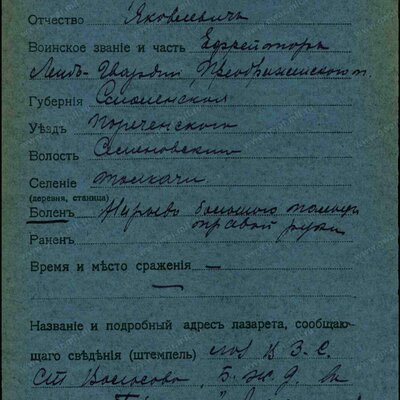 Отчество Яковлевичъ
Воинское званіе и часть Ефрейторъ
Лейбъ-Гвардіи Преображенского п.
Губернія Смоленская
Уѣздъ Поречского
Волость Семеновский
Селеніе Толкачи
(деревня, станица)
Боленъ большого пальца
правой руки
Раненъ
Время и мѣсто сраженія —
—
Названіе и подробный адресъ лазарета, сообщаю-
щаго свѣдѣнія (штемпель) В. З. С.
ст Волосово, Б. ж. д.